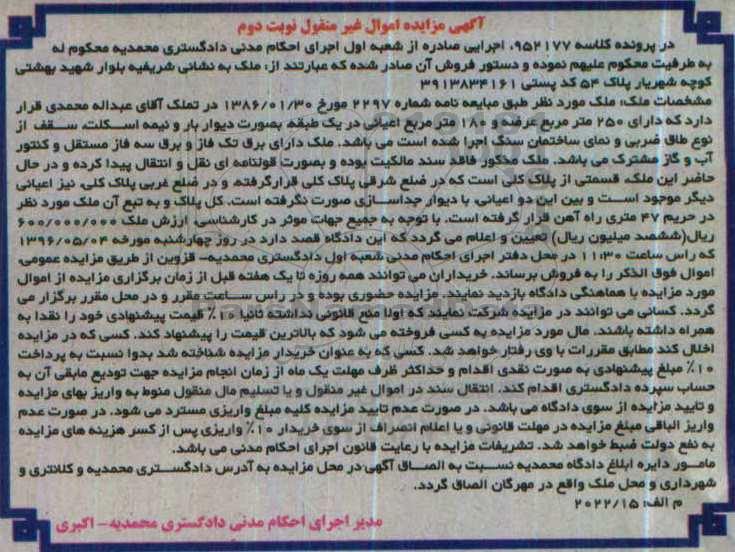 آگهی مزایده اموال غیر منقول نوبت دوم
در پرونده کلاسه ۹۵۲۱۷۷، اجرایی صادره از شعبه اول اجرای احکام مدنی دادگستری محمدیه محکوم له
به طرفیت محکوم علیهم نموده و دستور فروش آن صادر شده که عبارتند از: ملک به نشانی شریفیه بلوار شهید بهشتی
کوچه شهریار پلاک ۵۴ کد پستی ۳۹۱۳۸۳۴۱۶۱
مشخصات ملک: ملک مورد نظر طبق مبایعه نامه شماره ۲۲۹۷ مورخ ۱۳۸۶/۰۱/۳۰ در تملک آقای عبداله محمدی قرار
دارد که دارای ۲۵۰ متر مربع عرصه و ۱۸۰ متر مربع اعیانی در یک طبقه، بصورت دیوار بار و نیمه اسکلت، سقف از
نوع طاق ضربی و نمای ساختمان سنگ اجرا شده است می باشد. ملک دارای برق تک فاز و برق سه فاز مستقل و کنتور
آب و گاز مشترک می باشد. ملک مذکور فاقد سند مالکیت بوده و بصورت قولنامه ای نقل و انتقال پیدا کرده و در حال
حاضر این ملک، قسمتی از پلاک کلی است که در ضلع شرقی پلاک کلی قرارگرفته و در ضلع غربی پلاک کلی، نیز اعیانی
دیگر موجود است و بین این دو اعیانی، با دیوار جداسازی صورت نگرفته است. کل پلاک و به تبع آن ملک مورد نظر
در حریم ۴۷ متری راه آهن قرار گرفته است. با توجه به جمیع جهات موثر در کارشناسی، ارزش ملک ۶۰۰/۰۰۰/۰۰۰
ریال(ششصد میلیون ریال) تعیین و اعلام می گردد که این دادگاه قصد دارد در روز چهارشنبه مورخه ۱۳۹۶/۰۵/۰۴
که راس ساعت ۱۱:۳۰ در محل دفتر اجرای احکام مدنی شعبه اول دادگستری محمدیه- قزوین از طریق مزایده عمومی،
اموال فوق الذکر را به فروش برساند. خریداران می توانند همه روزه تا یک هفته قبل از زمان برگزاری مزایده از اموال
مورد مزایده با هماهنگی دادگاه بازدید نمایند. مزایده حضوری بوده و در راس ساعت مقرر و در محل مقرر برگزار می
گردد. کسانی می توانند در مزایده شرکت نمایند که اولا منع قانونی نداشته ثانیا ۱۰٪ قیمت پیشنهادی خود را نقدا به
همراه داشته باشند. مال مورد مزایده به کسی فروخته می شود که بالاترین قیمت را پیشنهاد کند. کسی که در مزایده
اخلال کند مطابق مقررات با وی رفتار خواهد شد. کسی که به عنوان خریدار مزایده شناخته شد بدوا نسبت به پرداخت
۱۰٪ مبلغ پیشنهادی به صورت نقدی اقدام و حداکثر ظرف مهلت یک ماه از زمان انجام مزایده جهت تودیع مابقی آن به
حساب سپرده دادگستری اقدام کند. انتقال سند در اموال غیر منقول و یا تسلیم مال منقول منوط به واریز بهای مزایده
و تایید مزایده از سوی دادگاه می باشد. در صورت عدم تایید مزایده کلیه مبلغ واریزی مسترد می شود. در صورت عدم
واریز الباقی مبلغ مزایده در مهلت قانونی و یا اعلام انصراف از سوی خریدار ۱۰٪ واریزی پس از کسر هزینه های مزایده
به نفع دولت ضبط خواهد شد. تشریفات مزایده با رعایت قانون اجرای احکام مدنی می باشد.
مامور دایره ابلاغ دادگاه محمدیه نسبت به الصاق آگهی در محل مزایده به آدرس دادگستری محمدیه و کلانتری و
شهرداری و محل ملک واقع در مهرگان الصاق گردد.
م الف: ۲۰۲۲/۱۵
مدیر اجرای احکام مدنی دادگستری محمدیه- اکبری